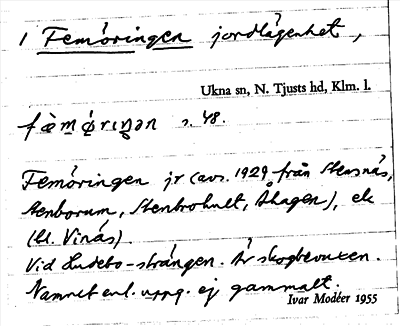 1 Femöringen jordlägenhet,
Ukna sn, N. Tjusts hd, Klm. l.
s. 48.
Femöringen jr (avs. 1929 från Stensnäs,
Stenborum, Stenbrohult, Åhagen), ek
(bl. Vinäs).
Vid Ludebo-strängen. Är skogbevuxen.
Namnet enl. uppg. ej gammalt.
Ivar Modéer 1955